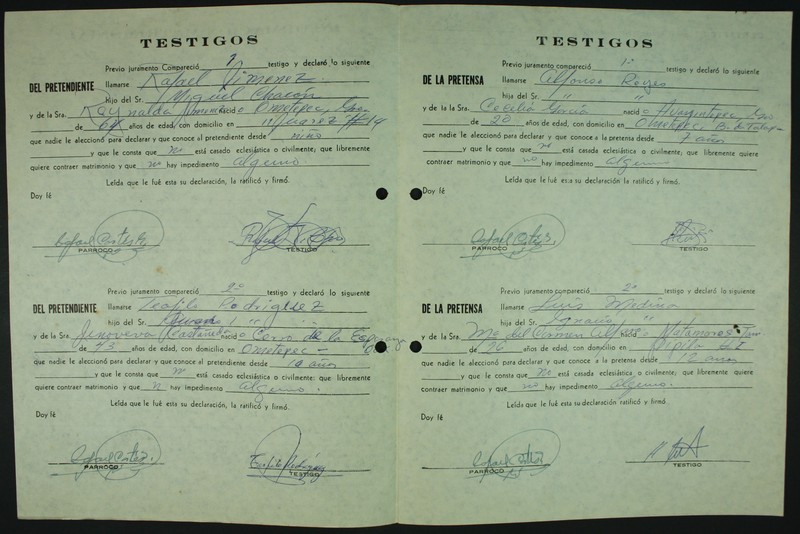 TESTIGOS
Previo juramento Compareció testigo y declaró lo siguiente
DEL PRETENDIENTE llamarse Rafael Jimenez
hijo del Sr. Miguel Chacón
y de la Sra. nació Ometepec, Gro
de años de edad, con domicilio en Juarez #14
que nadie le aleccionó para declarar y que conoce al pretendiente desde niño
y que le consta que no está casado eclesiástica o civilmente; que libremente
quiere contraer matrimonio y que no hay impedimento alguno
Leída que le fué esta su declaración, la ratificó y firmó.
Doy fé
Rafael Cortes
PARROCO
TESTIGO
Previo juramento compareció 2º testigo y declaró lo siguiente
DEL PRETENDIENTE llamarse Teofilo Rodriguez
hijo del Sr.
y de la Sra. Jenoveva Castañeda nació Cerro de la
de años de edad, con domicilio en Ometepec
que nadie le aleccionó para declarar y que conoce al pretendiente desde 10 años
y que le consta que está casado eclesiástica o civilmente; que libremente
quiere contraer matrimonio y que hay impedimento alguno.
Leída que le fué esta su declaración, la ratificó y firmó.
Doy fé
Rafael Cortes.
PARROCO
TESTIGO
TESTIGOS
Previo juramento compareció 1º testigo y declaró lo siguiente
DE LA PRETENSA llamarse Alfonso Reyes
hijo del Sr. " "
y de la Sra. Cecilia García nació
de 20 años de edad, con domicilio en Ometepec,
que nadie le aleccionó para declarar y que conoce a la pretensa desde 7 años
y que le consta que no está casado eclesiástica o civilmente; que libremente quiere
contraer matrimonio y que no hay impedimento alguno
Leída que le fué esta su declaración, la ratificó y firmó.
Doy fé
Rafael Cortes.
PARROCO
TESTIGO
Previo juramento compareció 2º testigo y declaró lo siguiente
DE LA PRETENSA llamarse Luis Medina
hijo del Sr. Ignacio "
y de la Sra. Ma del Carmen nació Matamoros Tam
de años de edad, con domicilio en
que nadie le aleccionó para declarar y que conoce a la pretensa desde 12 años
y que le consta que no está casado eclesiástica o civilmente; que libremente quiere
contraer matrimonio y que no hay impedimento alguno.
Leída que le fué esta su declaración ratificó y firmó.
Doy fé
Rafael Cortes
PARROCO
TESTIGO